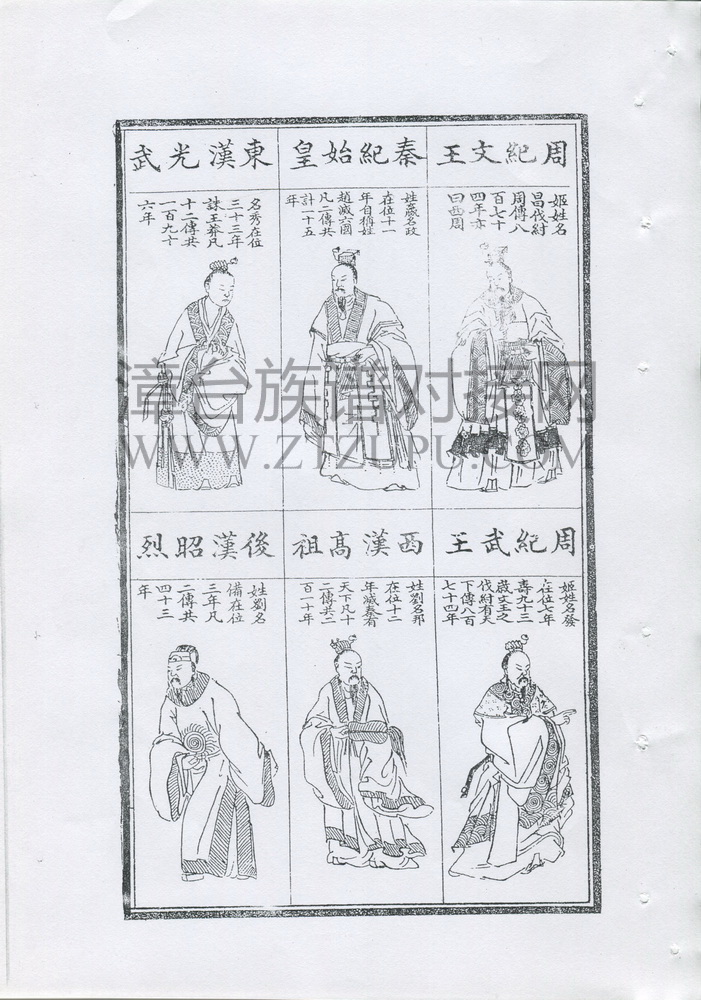 周紀文王
姬姓名
昌伐紂
周傳八
百七十
四年亦
曰西周
秦紀始皇
姓嬴名政
在位十一
年自稱姓
趙滅六國
凡二傳共
計一十五
年
東漢光武
名秀在位
三十三年
誅王莽凡
十二傳共
一百九十
六年
周紀武王
姬姓名發
在位七年
壽九十三
歲文王之
伐紂有天
下傳八百
七十四年
西漢高祖
姓劉名邦
在位十二
年滅秦有
天下凡十
二傳共二
百一十年
後漢昭烈
姓劉名
備在位
三年凡
二傳共
四十三
年
漳台族谱对接网
WWW.ZTZUPU.COM